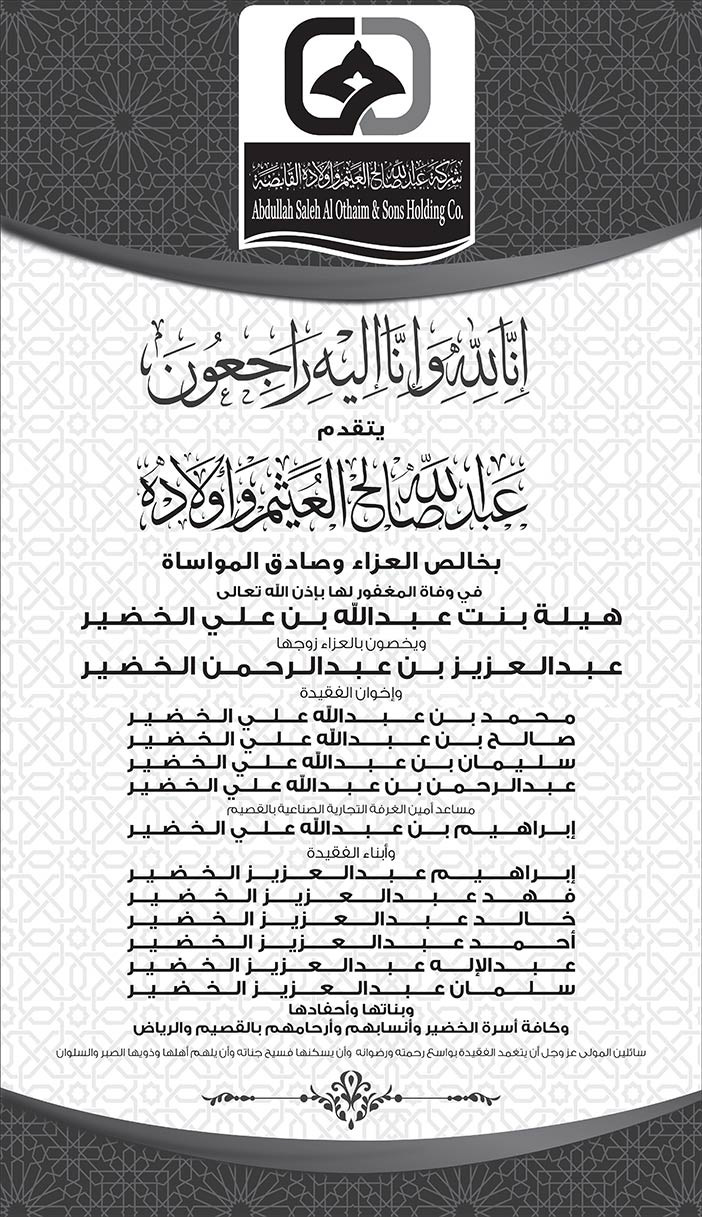 شركة عبدالله صالح العثيم وأولاده القابضة
Abdullah Saleh Al Othaim & Sons Holding Co.
إنا لله وإنا إليه راجعون
يتقدم
عبدالله صالح العثيم وأولاده
بخالص العزاء وصادق المواساة
في وفاة المغفور لها بإذن الله تعالى
هيلة بنت عبدالله بن علي الخضير
ويخصون بالعزاء زوجها
عبدالعزيز بن عبدالرحمن الخضير
وإخوان الفقيدة
محمد بن عبدالله علي الخضير
صالح بن عبدالله علي الخضير
سليمان بن عبدالله علي الخضير
عبدالرحمن بن عبدالله علي الخضير
مساعد أمين الغرفة التجارية الصناعية بالقصيم
إبراهيم بن عبدالله علي الخضير
وأبناء الفقيدة
إبراهيم عبدالعزيز الخضير
فهد عبدالعزيز الخضير
خالد عبدالعزيز الخضير
أحمد عبدالعزيز الخضير
عبدالإله عبدالعزيز الخضير
سلمان عبدالعزيز الخضير
وبناتها وأحفادها
وكافة أسرة الخضير وأنسابهم وأرحامهم بالقصيم والرياض
سائلين المولى عز وجل أن يتغمد الفقيدة بواسع رحمته ورضوانه وأن يسكنها فسيح جناته وأن يلهم أهلها وذويها الصبر والسلوان